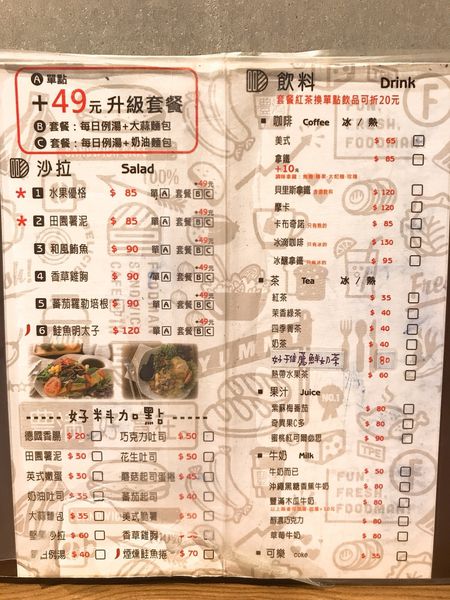 Ⓐ 單點
+49元 升級套餐
Ⓑ 套餐：每日例湯+大蒜麵包
Ⓒ 套餐：每日例湯+奶油麵包
沙拉 Salad
+49元
* 1 水果優格 $ 85 單A 套餐BC
+49元
* 2 田園薯泥 $ 85 單A 套餐BC
+49元
3 和風鮪魚 $ 90 單A 套餐BC
+49元
4 香草雞胸 $ 90 單A 套餐BC
+49元
5 蕃茄羅勒培根 $ 90 單A 套餐BC
+49元
6 鮭魚明太子 $ 120 單A 套餐BC
好料加點
德國香腸 $ 20 巧克力吐司 $ 50
田園薯泥 $ 30 花生吐司 $ 50
英式嫩蛋 $ 30 蘑菇起司蛋捲 $ 45
奶油吐司 $ 35 蕃茄起司 $ 40
大蒜麵包 $ 35 美式脆薯 $ 50
沙拉 $ 60 香草雞胸
例湯 $ 40 煙燻鮭魚捲 $ 70
飲料 Drink
套餐紅茶換單點飲品可折20元
咖啡 Coffee 冰 / 熱
美式 $ 65
拿鐵 $ 85
+10元
貝里斯拿鐵 $ 120
摩卡 $ 120
卡布奇諾 只有熱的 $ 85
冰滴咖啡 只有冰的 $ 130
冰釀拿鐵 只有冰的 $ 95
茶 Tea 冰 / 熱
紅茶 $ 35
茉香綠茶 $ 40
四季青茶 $ 40
奶茶 $ 40
鮮奶茶 $ 80
熱帶水果茶 $ 60
果汁 Juice
紫蘇梅蕃茄 $ 80
奇異果C多 $ 80
蜜桃紅可爾必思 $ 90
牛奶 Milk
牛奶而已 $ 50
沖繩黑糖香蕉牛奶 $ 80
豐滿木瓜牛奶 $ 80
醇濃巧克力 $ 80
草莓牛奶 $ 80
可樂 coke $ 35